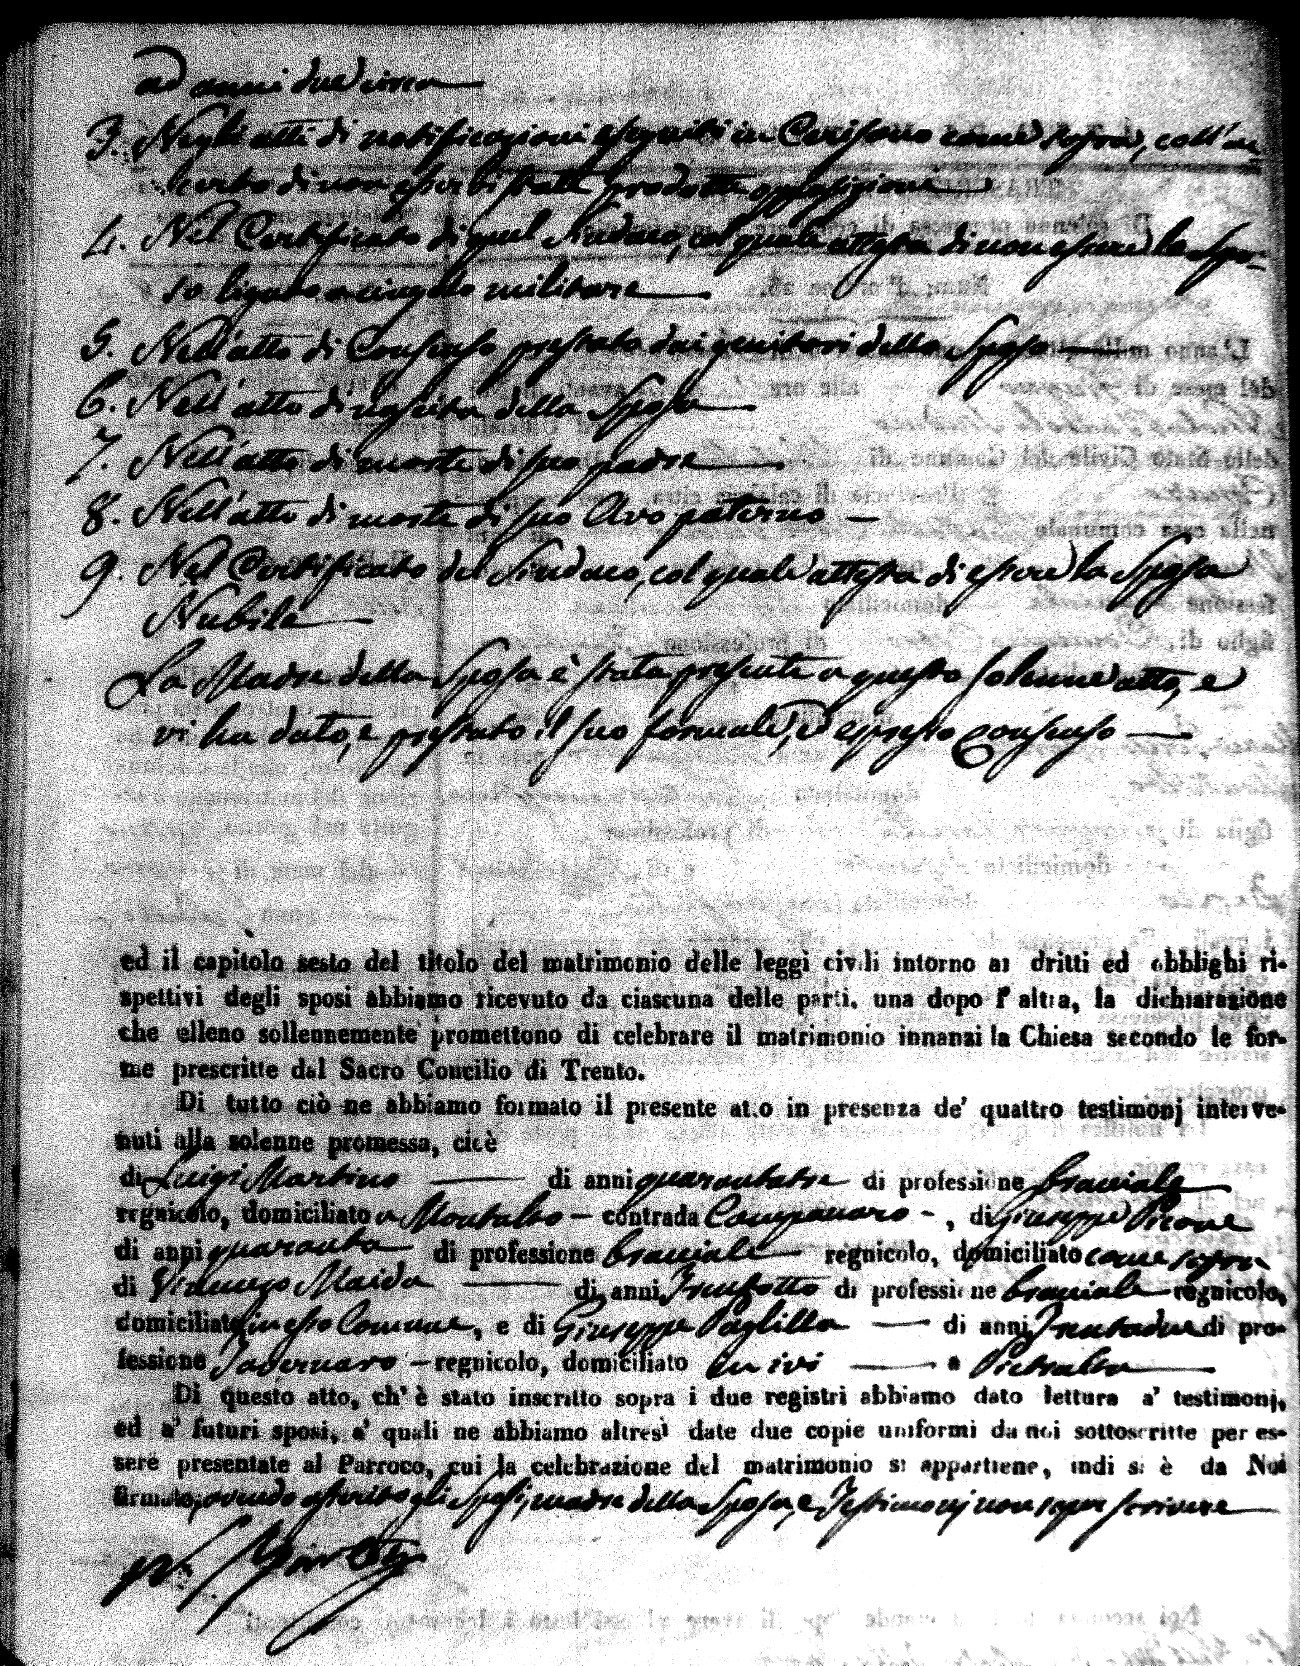 ad anni due circa
3. Negli atti di notificazioni eseguiti in Cerisano come sopra, coll'in
serto di non esservi state prodotte opposizioni
4. Nel Certificato di quel Sindaco, col quale attesta di non essere lo Spo-
so ligato a cingolo militare
5. Nell'atto di Consenso prestato dai genitori dello Sposo
6. Nell'atto di nascita della Sposa
7. Nell'atto di morte di suo padre
8. Nell'atto di morte di suo Avo paterno
9. Nel Certificato del Sindaco, col quale attesta di essere la Sposa
Nubile
La Madre della Sposa è stata presente a questo solenne atto, e
vi ha dato, e prestato il suo formale, ed espresso Consenso
ed il capitolo sesto del titolo del matrimonio delle leggi civili intorno ai dritti ed obblighi ri-
spettivi degli sposi abbiamo ricevuto da ciascuna delle parti, una dopo l'altra, la dichiarazione
che elleno sollennemente promettono di celebrare il matrimonio innanzi la Chiesa secondo le for-
me prescritte dal Sacro Concilio di Trento.
Di tutto ciò ne abbiamo formato il presente atto in presenza de' quattro testimonj interve-
nuti alla solenne promessa, cioè
di Luigi Martino di anni quarantatre di professione bracciale
regnicolo, domiciliato a Montalto contrada Campanaro, di Giuseppe Pirone
di anni quaranta di professione bracciale regnicolo, domiciliato come sopra
di Vincenzo Maida di anni Trentotto di professione bracciale regnicolo,
domiciliato in esso Comune, e di Giuseppe Paglilla di anni Trentadue di pro-
fessione Tavernaro regnicolo, domiciliato in ivi a
Di questo atto, ch'è stato inscritto sopra i due registri abbiamo dato lettura a' testimonj,
ed a' futuri sposi, a' quali ne abbiamo altresì date due copie uniformi da noi sottoscritte per es-
sere presentate al Parroco, cui la celebrazione del matrimonio si appartiene, indi si è da Noi
firmato, avendo asserito gli Sposi, madre della Sposa, e Testimonj non saper scrivere